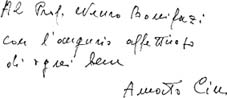 Al Prof. Neuro Bonifazi
con l'augurio affettuoso
di ogni bene
Amato